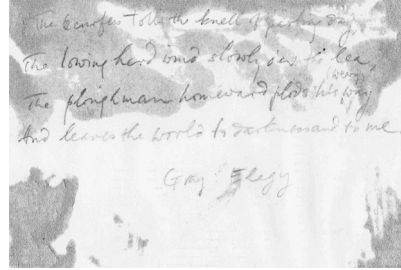 The Curfew Tolls the knell of parting day,
The lowing herd wind slowly o'er the lea,
(weary)
The ploughman homeward plods his way
And leaves the world to darkness and to me.
Gray's Elegy